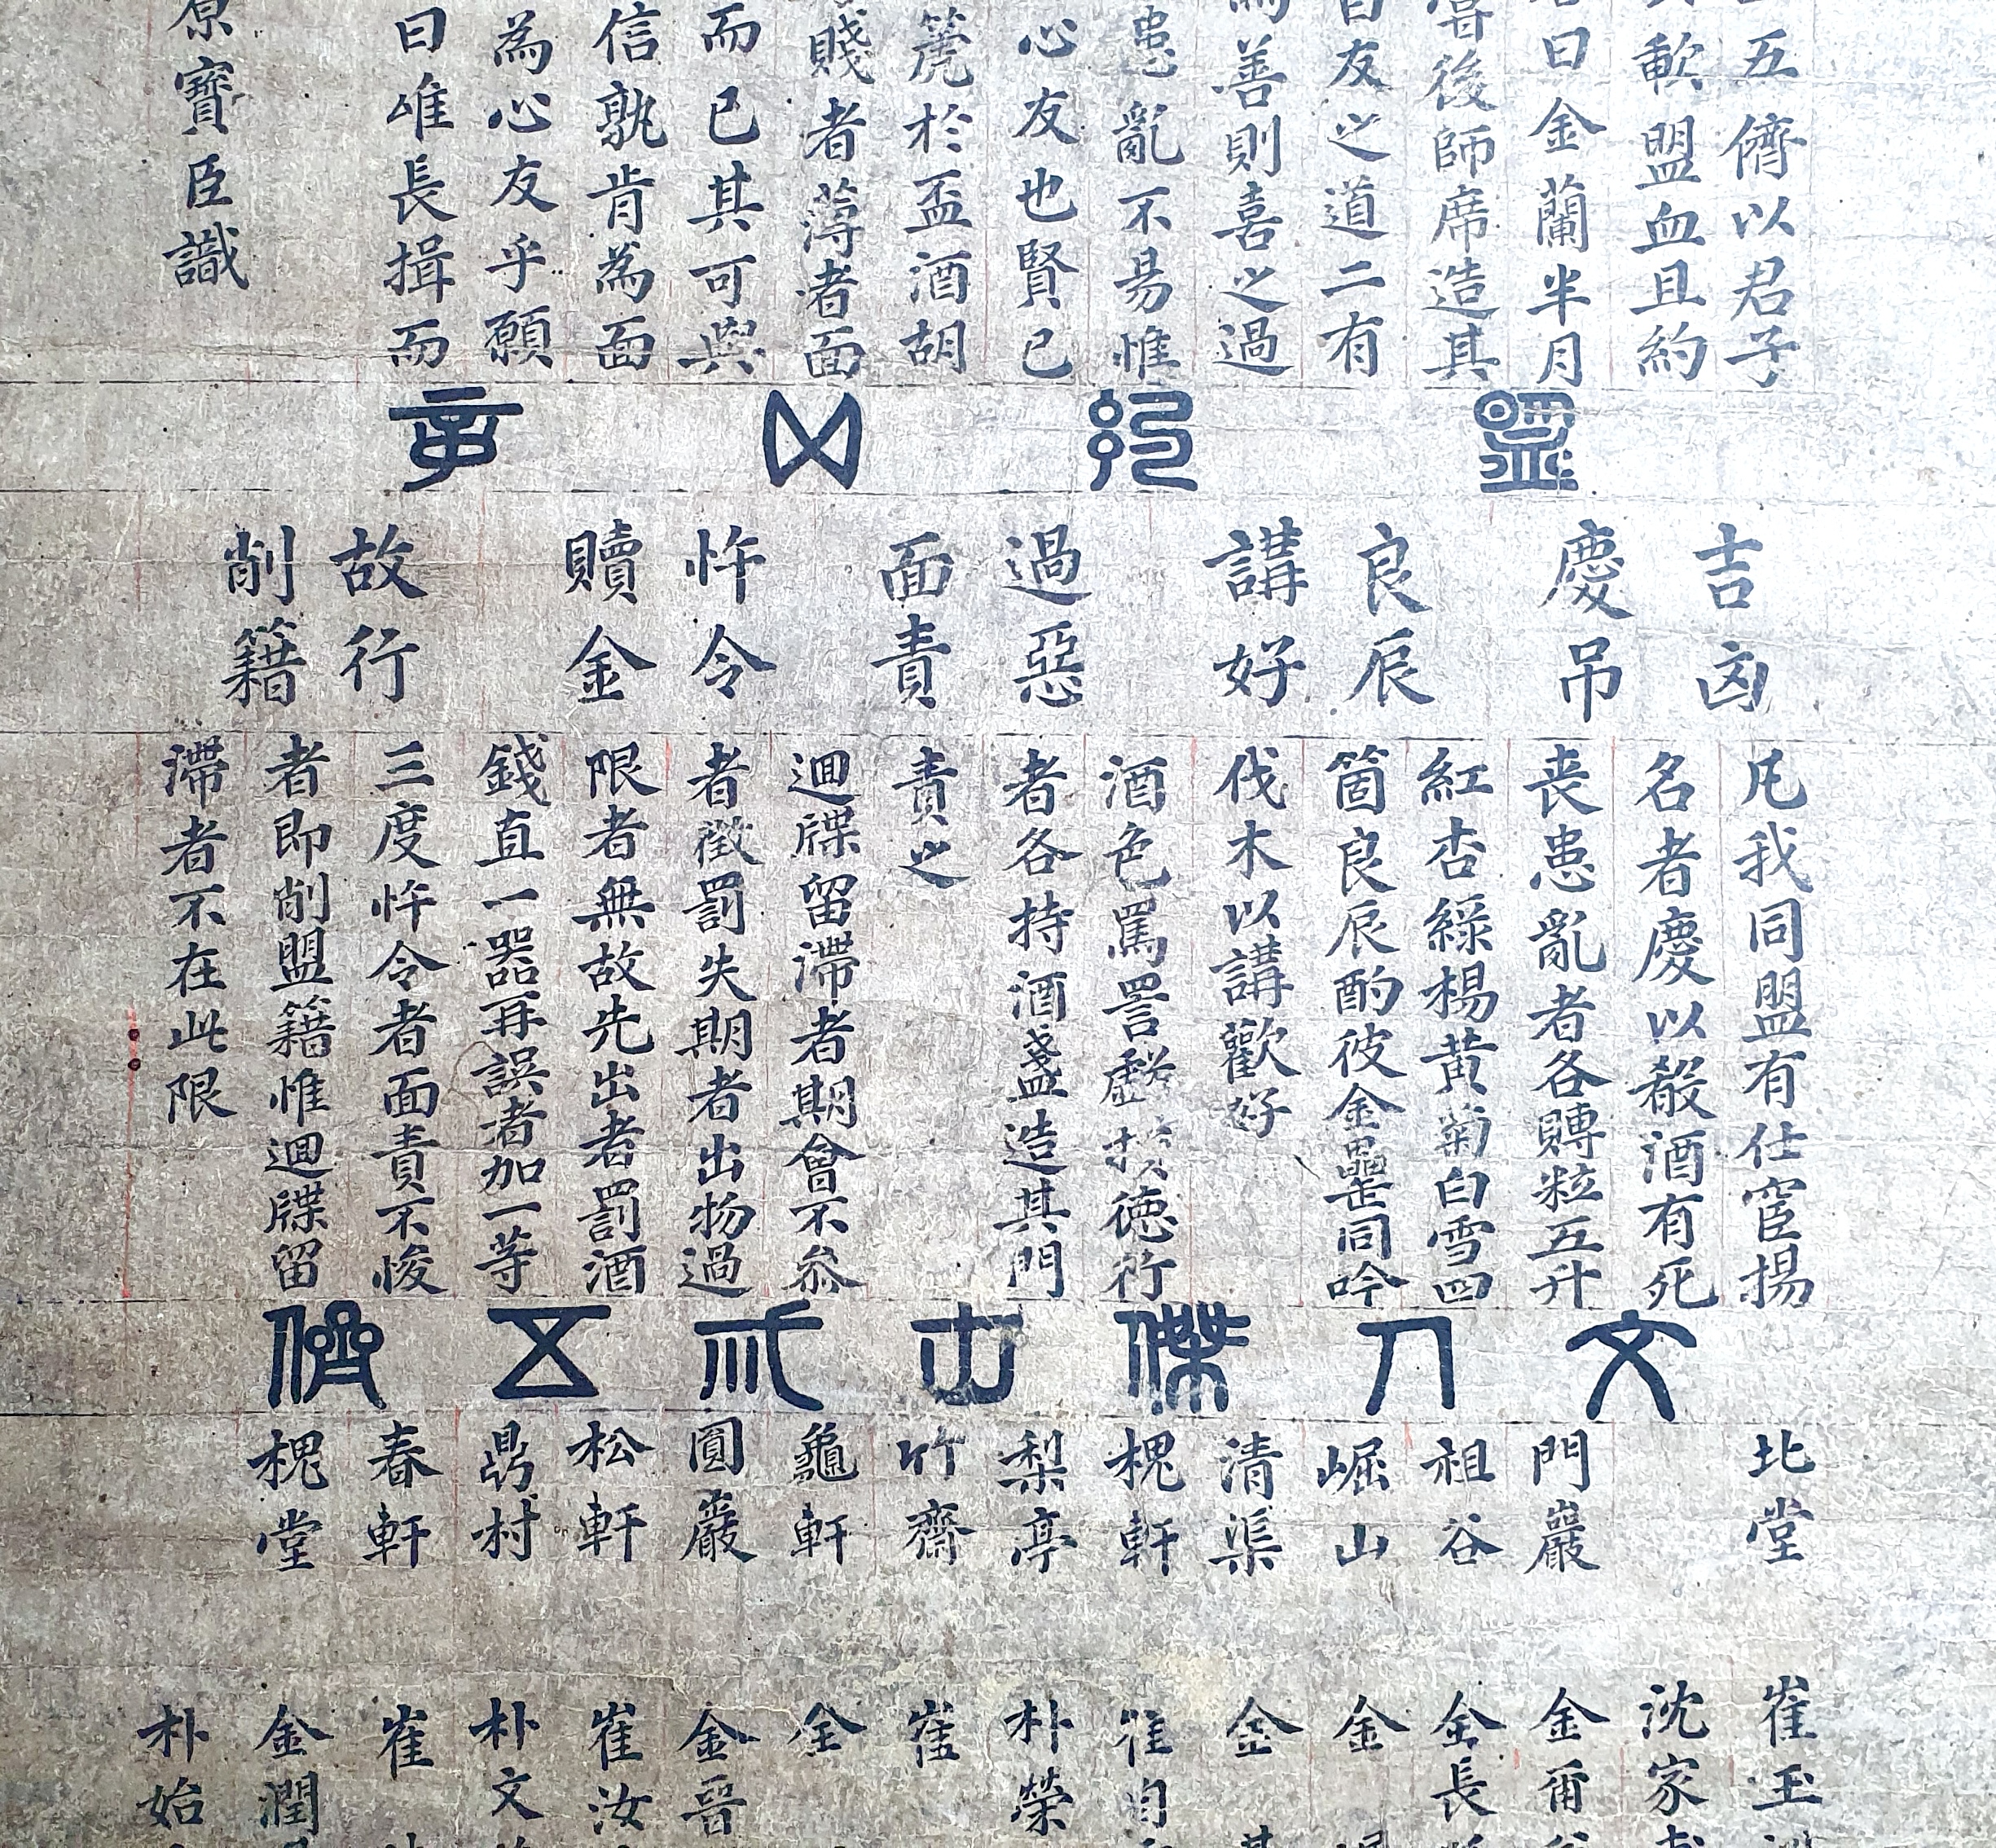 五儕以君子
歃盟血且約
曰金蘭半月
後師席造其
友之道二有
善則喜之過
患亂不易惟
心友也賢已
篪於盃酒胡
賤者薄者面
而已其可與
信孰肯為面
為心友乎願
曰唯長揖而
原寶臣識
盟 約 四 章
吉凶
慶吊
良辰
講好
過惡
面責
忤令
贖金
故行
削籍
凡我同盟有仕宦揚
名者慶以殽酒有死
喪患亂者各賻粒五升
紅杏綠楊黃菊白雪四
箇良辰酌彼金罍同吟
伐木以講歡好
酒色罵詈戲損德行
者各持酒盞造其門
責之
迴牒留滯者期會不參
者徵罰失期者出物過
限者無故先出者罰酒
錢直一器再誤者加一等
三度忤令者面責不悛
者即削盟籍惟迴牒留
滯者不在此限
文 刀 傑 中 二 五 儕
北堂
門巖
祖谷
崛山
清渠
槐軒
梨亭
竹齋
龜軒
圓巖
松軒
鼎村
春軒
槐堂
崔玉
沈家
金甭
金長
金
金
崔自
朴榮
崔
金
金晉
崔汝
朴文
崔
金潤
朴始